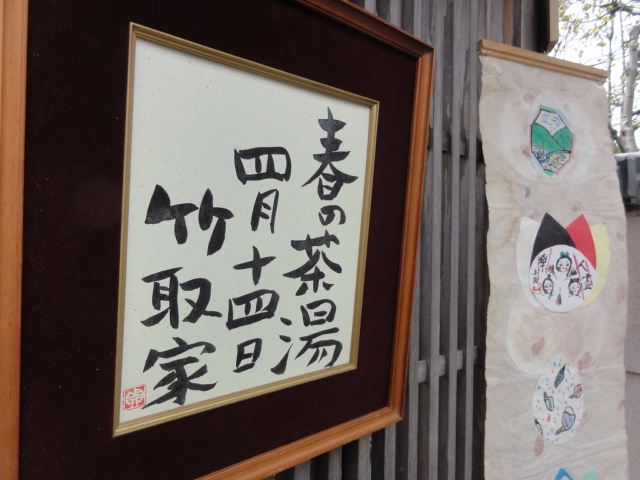 春の茶湯
四月十四日
竹取家